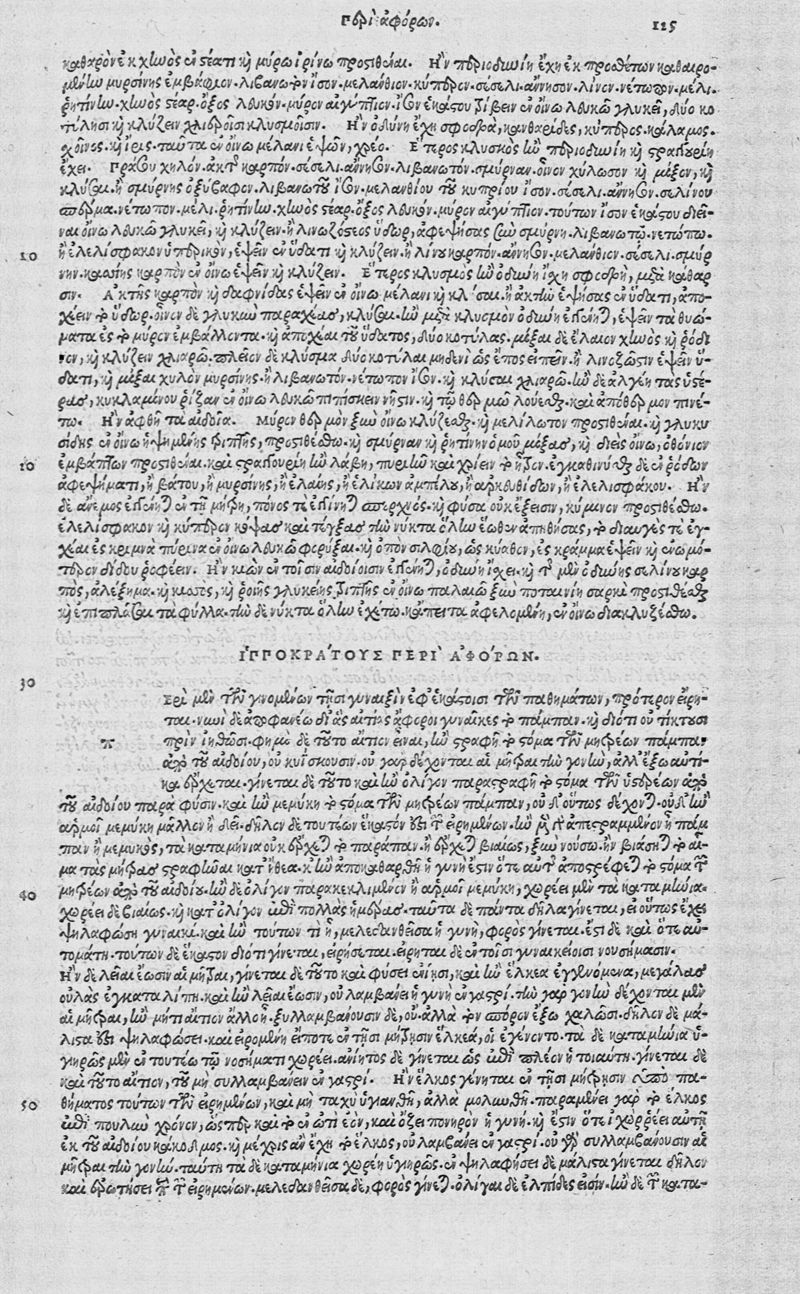 Περὶ ἀφόρων. 125
καθαρὸν ἐκ χηνὸς ἐν στέατι καὶ μύρῳ ἰρίνῳ προστιθέναι. Ἢν περιωδυνίη ἔχῃ ἐκ προσθέτων καθαιρο-
μένην μυρσίνης ἐμβάφιον. λιβανωτὸν ἴσον. μελάνθιον. κύπερον. σέσελι. ἄννησον. λίνον. νέτωπον. μέλι.
ῥητίνην. χηνὸς στέαρ. ὄξος λευκὸν. μύρον αἰγύπτιον. ἴσον ἑκάστου τρίβειν ἐν οἴνῳ λευκῷ γλυκεῖ, δύο κο-
τύλῃσι καὶ κλύζειν χλιεροῖσι κλυσμοῖσιν. Ἢν ὀδύνη ἔχῃ σφοδρὰ, κανθαρίδες, κύπερος. κάλαμος.
σχοῖνος. καὶ ἶρις. ταῦτα ἐν οἴνῳ μέλανι ἑψῶν, χρέο. Ἕτερος κλυσμὸς ἢν περιωδυνίη καὶ στραγγουρίη
ἔχει. Πράσου χηλόν. ἀκτῆς καρπόν. σέσελι. ἄννησον. λιβανωτόν. σμύρναν. οἶνον χύλωσον καὶ μίξον, καὶ
κλύσαι. ἢ σμύρνης ὀξύβαφον. λιβανωτοῦ ἴσον. μελανθίου τοῦ κυπρίου ἴσον. σέσελι. ἄννησον. σελίνου
σπέρμα. νέτωπον. μέλι. ῥητίνην. χηνὸς στέαρ. ὄξος λευκὸν. μύρον αἰγύπτιον. τούτων ἴσον ἑκάστου διεῖ-
ναι οἴνῳ λευκῷ γλυκεῖ, καὶ κλύζειν. ἢ λινοζόστεος ὕδωρ, ἀφεψήσας ξὺν σμύρνῃ. λιβανωτῷ. νετώπῳ.
10 ἢ ἐλελίσφακον ὑπερικὸν, ἑψεῖν ἐν ὕδατι καὶ κλύζειν. ἢ λίνου καρπὸν. ἄννησον. μελάνθιον. σέσελι. σμύρ-
νην. καὶ ἀκτῆς καρπὸν ἐν οἴνῳ ἑψεῖν καὶ κλύζειν. Ἕτερος κλυσμὸς ἢν ὀδύνη ἔχῃ σφοδρὴ, μετὰ κάθαρ-
σιν. Ἀκτῆς καρπὸν καὶ δαφνίδας ἑψεῖν ἐν οἴνῳ μέλανι καὶ κλύσαι. ἢ ἀκτὴν ἑψήσας ἐν ὕδατι, ἀπο-
χέειν τὸ ὕδωρ. οἶνον δὲ γλυκὺν παραχέας, κλύσαι. ἢν μετὰ κλυσμὸν ὀδύνη ἐπιγένηται, ἑψεῖν τὰ θυώ-
ματα ἐς τὸ μύρον ἐμβάλλονται. καὶ ἀποχέαι τοῦ ὕδατος, δύο κοτύλας. μίξαι δὲ ἔλαιον χηνὸς καὶ ῥόδι
νον, καὶ κλύζειν χλιαρῷ. πλεῖον δὲ κλύσμα δύο κοτύλαι μηδενὶ ὡς ἔπος εἰπεῖν. ἢ λινοζῶστιν ἑψεῖν ὕ-
δατι, καὶ μίξαι χυλὸν μυρσίνης. ἢ λιβανωτόν. νέτωπον ἴσον. καὶ κλύσαι χλιαρῷ. ἢν δὲ ἀλγέῃ τὰς ὑστέ-
ρας, κυκλαμίνου ῥίζαν ἐν οἴνῳ λευκῷ πιπίσκειν νῆστιν. καὶ τῷ θερμῷ λούεσθαι. καὶ ἀπόθερμον πινέ-
τω. Ἢν ἀφθῇ τὰ αἰδοῖα. Μύρον θερμὸν ξὺν οἴνῳ κλύζεσθαι. καὶ μελίλωτον προστιθέναι. καὶ γλυκυ
σίδης ἐν οἴνῳ ἡψημένης τριπτῆς, προστιθέσθω. καὶ σμύρναν καὶ ῥητίνην ὁμοῦ μίξας, καὶ διεὶς οἴνῳ, ὀθόνιον
10 ἐμβάπτων προστιθέναι. καὶ στραγγουρίη ἢν λάβῃ, πυριῆν καὶ χρίειν τὸ ἦτρον. ἐγκαθινύσθαι δὲ ἐν ῥόδων
ἀφεψήματι, ἢ βάτου, ἢ μυρσίνης, ἢ ἐλαίης, ἢ ἑλίκων ἀμπέλου, ἢ ἀρκευθίδων, ἢ ἐλελισφάκου. Ἢν
δὲ ἄνεμος ἐπιγένηται ἐν τῇ μήτρῃ, πόνος τε ἐπιγένηται σπερχνὸς. καὶ φύσα οὐκ ἔξεισιν, κύμινον προστιθέσθω.
ἐλελίσφακον καὶ κύπερον κόψας καὶ τέγξας τὴν νύκτα ὅλην ἕωθεν ἀπηθήσας, τὸ διαυγές τε ἐγ-
χέαι ἐς κρίμνα πύρινα ἐν οἴνῳ λευκῷ φορύξαι. καὶ ὀπὸν σιλφίου, ὡς κύαθον, ἐς κράμμα ἑψεῖν καὶ ἐνωμό-
τερον δίδου ῥοφέειν. Ἢν κιὼν ἐν τοῖσιν αἰδοίοισιν ἐπιγένηται, ὀδύνη ἴσχει. καὶ τῆς μὲν ὀδύνης σελίνου καρ
πὸς, ἀλέξημα. καὶ κισσὸς, καὶ ῥοιῆς γλυκείης, τριπτῆς ἐν οἴνῳ παλαιῷ ξὺν ποταινίῃ σαρκὶ προστιθέσθαι
καὶ ἐπιπλάσαι τὰ φύλλα. τὴν δὲ νύκτα ὅλην ἐχέτω. κἄπειτα ἀφελομένη, ἐν οἴνῳ διακλυζέσθω.
ἹΠΠΟΚΡΆΤΟΥΣ ΠΕΡῚ ἈΦΌΡΩΝ.
30 ΕΡΙ μὲν τῶν γινομένων τῇσι γυναιξὶν ἐφ' ἑκάστοισι τῶν παθημάτων, πρότερον εἴρη-
ται. νυνὶ δὲ ἀποφανέω δι' ἃς αἰτίας ἄφοροι γυναῖκες τὸ πάμπαν. καὶ διότι οὐ τίκτουσι
π πρὶν ἰηθῶσι. φημὶ δὲ τοῦτο αἴτιον εἶναι, ἢν στραφῇ τὸ στόμα τῶν μητρέων πάμπαν
ἀπὸ τοῦ αἰδοίου, οὐ κυΐσκουσιν. οὐ γὰρ δέχονται αἱ μῆτραι τὴν γονὴν, ἀλλ' ἔξω αὐτί-
κα ἔρχεται. γίνεται δὲ τοῦτο καὶ ἢν ὀλίγον παραστραφῇ τὸ στόμα τῶν ὑστερέων ἀπὸ
τοῦ αἰδοίου παρὰ φύσιν. καὶ ἢν μεμύκῃ τὸ στόμα τῶν μητρέων πάμπαν, οὐδ' οὕτως δέχονται. οὐδ' ἢν
ἁρμοῖ μεμύκῃ μᾶλλον ἢ δεῖ. δῆλον δὲ τουτέων ἕκαστον ἐπὶ τῶν εἰρημένων. ἢν μὲν γὰρ ἀπεστραμμένον ἢ πάμ
παν ἢ μεμυκὸς, τὰ καταμήνια οὐκ ἔρχεται τὸ παράπαν. ἢ ἔρχεται βιαίως, ξὺν νούσῳ. ἢν βιάσηται τὸ αἷ-
μα τὰς μήτρας στραφῆναι κατ' ἤθεα. κἢν ἀποκαθαρθῇ ἡ γυνὴ ἔστιν ὅτε αὖτις ἀποστρέφεται τὸ στόμα τῶν
40 μητρέων ἀπὸ τοῦ αἰδοίου. ἢν δὲ ὀλίγον παρακεκλιμένον ἢ ἁρμοῖ μεμύκῃ, χωρέει μὲν τὰ καταμήνια.
χωρέει δὲ βιαίως. καὶ κατ' ὀλίγον ἐπὶ πολλὰς ἡμέρας. ταῦτα δὲ πάντα δῆλα γίνεται, εἰ οὕτως ἔχει
ψηλαφώσῃ γυναικί. καὶ ἢν τούτων τὶ ᾖ, μελεδανθεῖσα ἡ γυνὴ, φορὸς γίνεται. ἔστι δὲ καὶ ὅτε αὐ-
τομάτη. τούτων δὲ ἕκαστον διότι γίνεται, εἰρήσεται. εἴρηται δὲ ἐν τοῖσι γυναικείοισι νουσήμασιν.
Ἢν δὲ λεῖαι ἔωσιν αἱ μῆτραι, γίνεται δὲ τοῦτο καὶ φύσει ἐνίῃσι, καὶ ἢν ἕλκεα ἐγγινόμενα, μεγάλας
οὐλὰς ἐγκαταλίπῃ. καὶ ἢν λεῖαι ἔωσιν, οὐ λαμβάνει ἡ γυνὴ ἐν γαστρί. τὴν γὰρ γονὴν δέχονται μὲν
αἱ μῆτραι, ἢν μήτι αἴτιον ἄλλο ᾖ. ξυλλαμβάνουσιν δὲ, οὔ. ἀλλὰ τὸν σπόρον ἔξω χαλῶσι. δῆλον δὲ μά-
λιστα ἐπὶ ψηλαφώσει. καὶ εἰρομένη εἴποτε ἐν τῇσι μήτρῃσιν ἕλκεά, οἱ ἐγένοντο. τὰ δὲ καταμήνια ὑ-
γιηρῶς μὲν ἐν τουτέῳ τῷ νοσήματι χωρέει. ἀνίητος δὲ γίνεται ὡς ἐπὶ πλέον ἡ τοιαύτη. γίνεται δὲ
καὶ τοῦτο αἴτιον, τοῦ μὴ συλλαμβάνειν ἐν γαστρί. Ἢν ἕλκος γένηται ἐν τῇσι μήτρῃσιν ὑπὸ πα-
50 θήματος τούτων τῶν εἰρημένων, καὶ μὴ ταχὺ ὑγιανθῇ, ἀλλὰ μολωθῇ. παραμένει γὰρ τὸ ἕλκος
ἐπὶ πουλὺν χρόνον, ὥσπερ καὶ τὸ ἐν ὠτὶ ἐὸν, καὶ ὄζει πονηρὸν ἡ γυνὴ. καὶ ἔστιν ὅτε ἰχωρέει αὐτῇ
ἐκ τοῦ αἰδοίου κάκοδμος. καὶ μέχρις ἂν ἔχῃ τὸ ἕλκος, οὐ λαμβάνει ἐν γαστρί. οὐ γὰρ συλλαμβάνουσιν αἱ
μῆτραι τὴν γονήν. ταύτῃ τὰ δὲ καταμήνια χωρέῃ ὑγιηρῶς. ἐν ψηλαφήσει δὲ μάλιστα γίνεται δῆλον
καὶ ἐρωτήσει περὶ τῶν εἰρημένων. μελεδανθεῖσα δὲ, φορὸς γίνεται. ὀλίγαι δὲ ἐλπίδες εἰσίν. ἢν δὲ τῶν κατα-